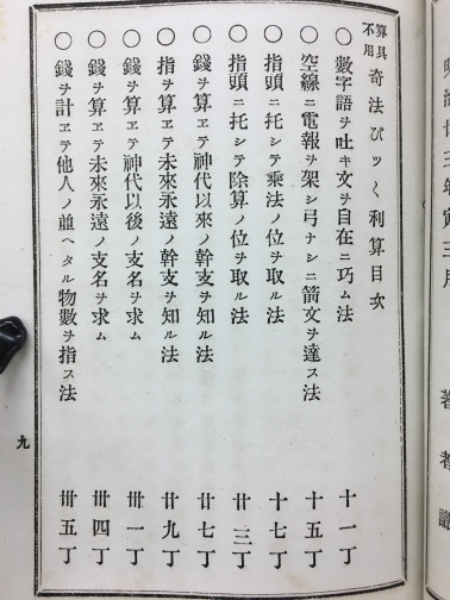 算具不用 奇法びつく利算目次
〇數字語ヲ吐キ文ヲ自在ニ巧ム法 十一丁
〇空線ニ電報ヲ架シ弓ナシニ箭文ヲ達ス法 十五丁
〇指頭ニ托シテ乘法ノ位ヲ取ル法 十七丁
〇指頭ニ托シテ除算ノ位ヲ取ル法 廿三丁
〇錢ヲ算ヱテ神代以來ノ幹支ヲ知ル法 廿七丁
〇指ヲ算ヱテ未來永遠ノ幹支ヲ知ル法 廿九丁
〇錢ヲ算ヱテ神代以後ノ支名ヲ求ム 卅一丁
〇錢ヲ算ヱテ未來永遠ノ支名ヲ求ム 卅四丁
〇錢ヲ計ヱテ他人ノ並ヘタル物數ヲ指ス法 卅五丁
九
明治廿三年寅三月
著者識